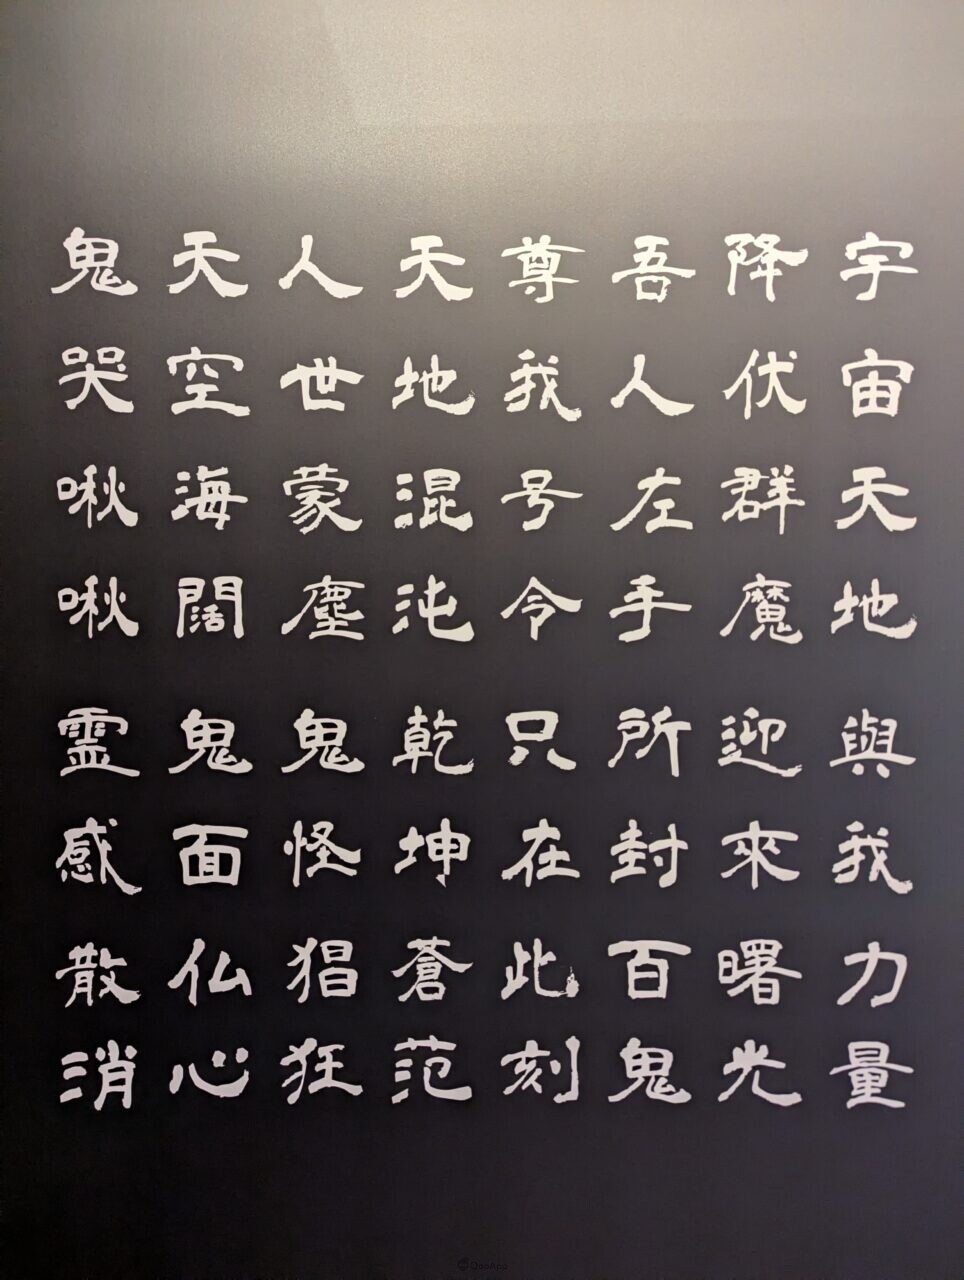 宇宙天地與我力量
降伏群魔迎來曙光
吾人左手所封百鬼
尊我号令只在此刻
天地混沌乾坤蒼范
人世蒙塵鬼怪猖狂
天空海闊鬼面仏心
鬼哭啾啾霊感散消